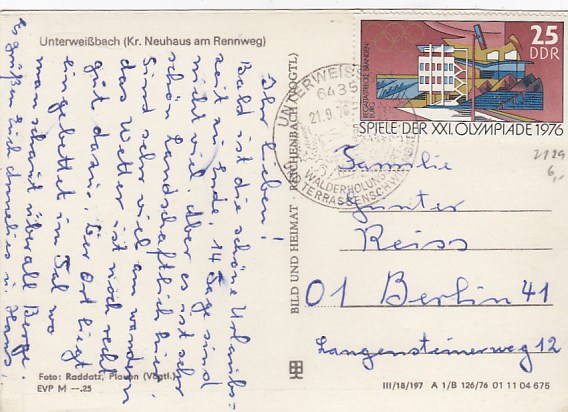 Unterweißbach (Kr. Neuhaus am Rennweg)
Ihr Lieben!
Bald ist die schöne Urlaubs-
zeit zu Ende. 14 Tage sind
nicht viel. Aber es ist sehr
schön landschaftlich hier.
Sind sehr viel am wandern
das Wetter ist noch recht
gut dazu. Der Ort liegt
eingebettet im Tal wo
man schaut überall Berge.
Es grüßen Euch Annelies u. Hans
Foto: Raddatz, Plauen (Vogtl.)
EVP M –.25
BILD UND HEIMAT · REICHENBACH (VOGTL)
25
DDR
SPIELE DER XXI. OLYMPIADE 1976
UNTERWEISS
6435
21.9.76
WALDERHOLUNG
TERRASSENSCHW
2129
6,-
Familie
Günter
Reiss
01 Berlin 41
Langensteinerweg 12
III/18/197 A 1/B 126/76 01 11 04 675